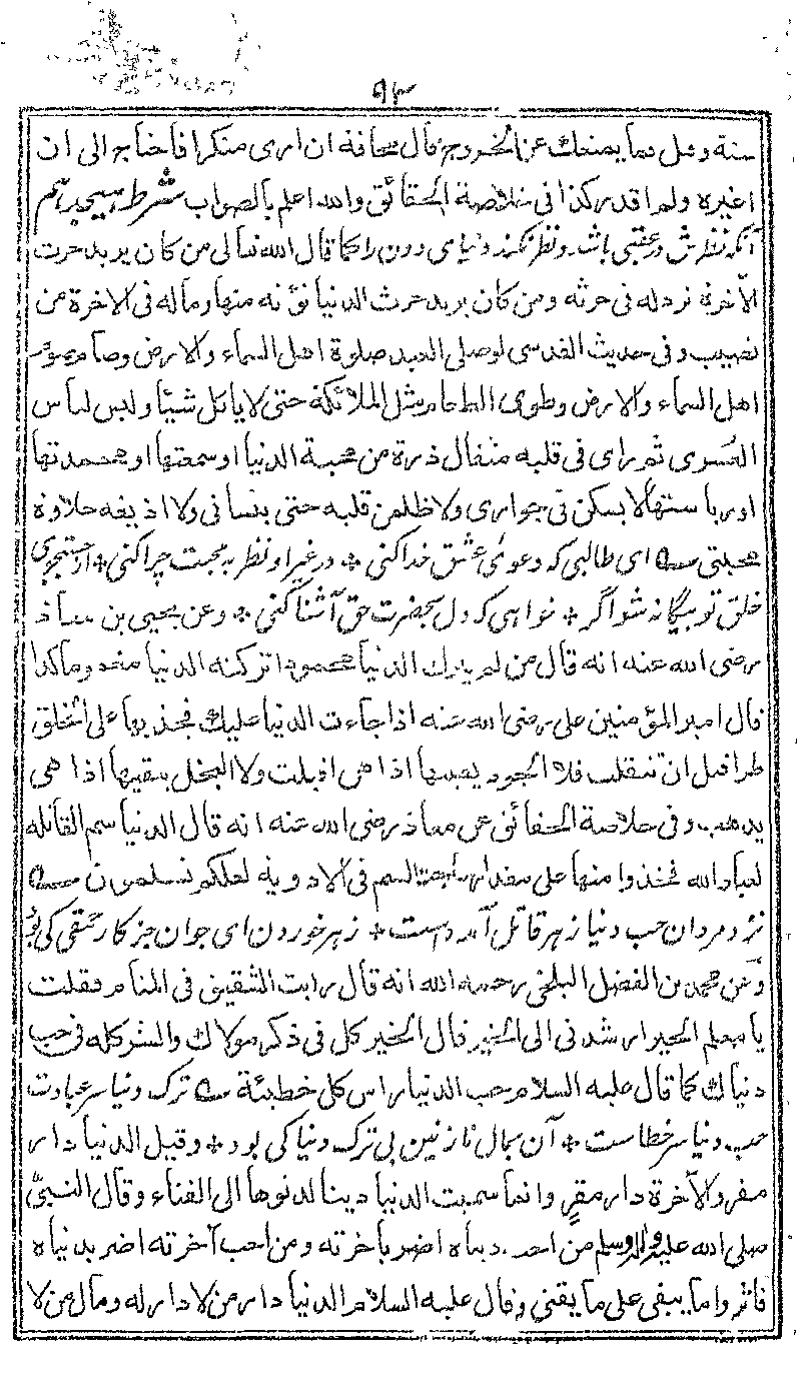 ٩٣
سنة وقيل فما يمنعك عن الخروج قال مخافة ان ارى منكرا فاحتاج الى ان
اغيره ولم اقدر كذا فى خلاصة الحقائق والله اعلم بالصواب شرط هيجدهم
آنكه نظرش در عقبى باشد و نظر نكند دنياى دون را كما قال الله تعالى من كان يريد حرث
الآخرة نزد له فى حرثه ومن كان يريد حرث الدنيا نؤته منها وماله فى الاخرة من
نصيب وفى حديث القدسى لو صلى العبد صلوة اهل السماء والارض وصام صوم
اهل السماء والارض وطوى الطعام مثل الملائكة حتى لا ياكل شيئا ولبس لباس
العرى ثم راى فى قلبه مثقال ذرة من محبة الدنيا او سمعتها او محمدتها
او رياستها لا يسكن فى جوارى ولا ظلمن قلبه حتى ينسانى ولا اذيقه حلاوة
محبتى ــه اى طالبى كه دعوىٔ عشق خدا كنى * در غير او نظر به محبت چرا كنى *
خلق تو بيگانه شو اگر * خواهى كه دل بحضرت حق آشنا كنى * وعن يحيى بن معاذ
رضى الله عنه انه قال من لم يترك الدنيا محمودا تركته الدنيا
قال امير المؤمنين على رضى الله عنه اذا جاءت الدنيا عليك فجد بها على الخلق
طرا قبل ان تنقلب فلا الجود يفنيها اذا هى اقبلت ولا البخل يبقيها اذا هى
يذهب وفى خلاصة الحقائق عن معاذ رضى الله عنه انه قال الدنيا سم القاتله
لعباد الله فخذوا منها على مقدار السم فى الادوية لعلكم تسلمون ــه
نزد مردان حب دنيا زهر قاتل آمدست * زهر خوردن اى جوان جز كار كى بود
وعن محمد بن الفضل البلخى رحمه الله انه قال رايت الشقيق فى المنام فقلت
يا معلم الخير ارشدنى الى الخير قال الخير كل فى ذكر مولاك والشر كله فى حب
دنياك كما قال عليه السلام حب الدنيا راس كل خطيئة ــه ترك دنيا سر عبادت
حب دنيا سر خطاست * آن جمال نازنين بى ترك دنيا كى بود * وقيل الدنيا دار
مفر والآخرة دار مقرٍ وانما سميت الدنيا دينا لدنوها الى الفناء وقال النبىّ
صلى الله عليه وآله وسلم من احب دنياه اضر بآخرته ومن احب آخرته اضر بدنياه
فاثروا ما يبقى على ما يفنى وقال عليه السلام الدنيا دار من لا دار له ومال من لا